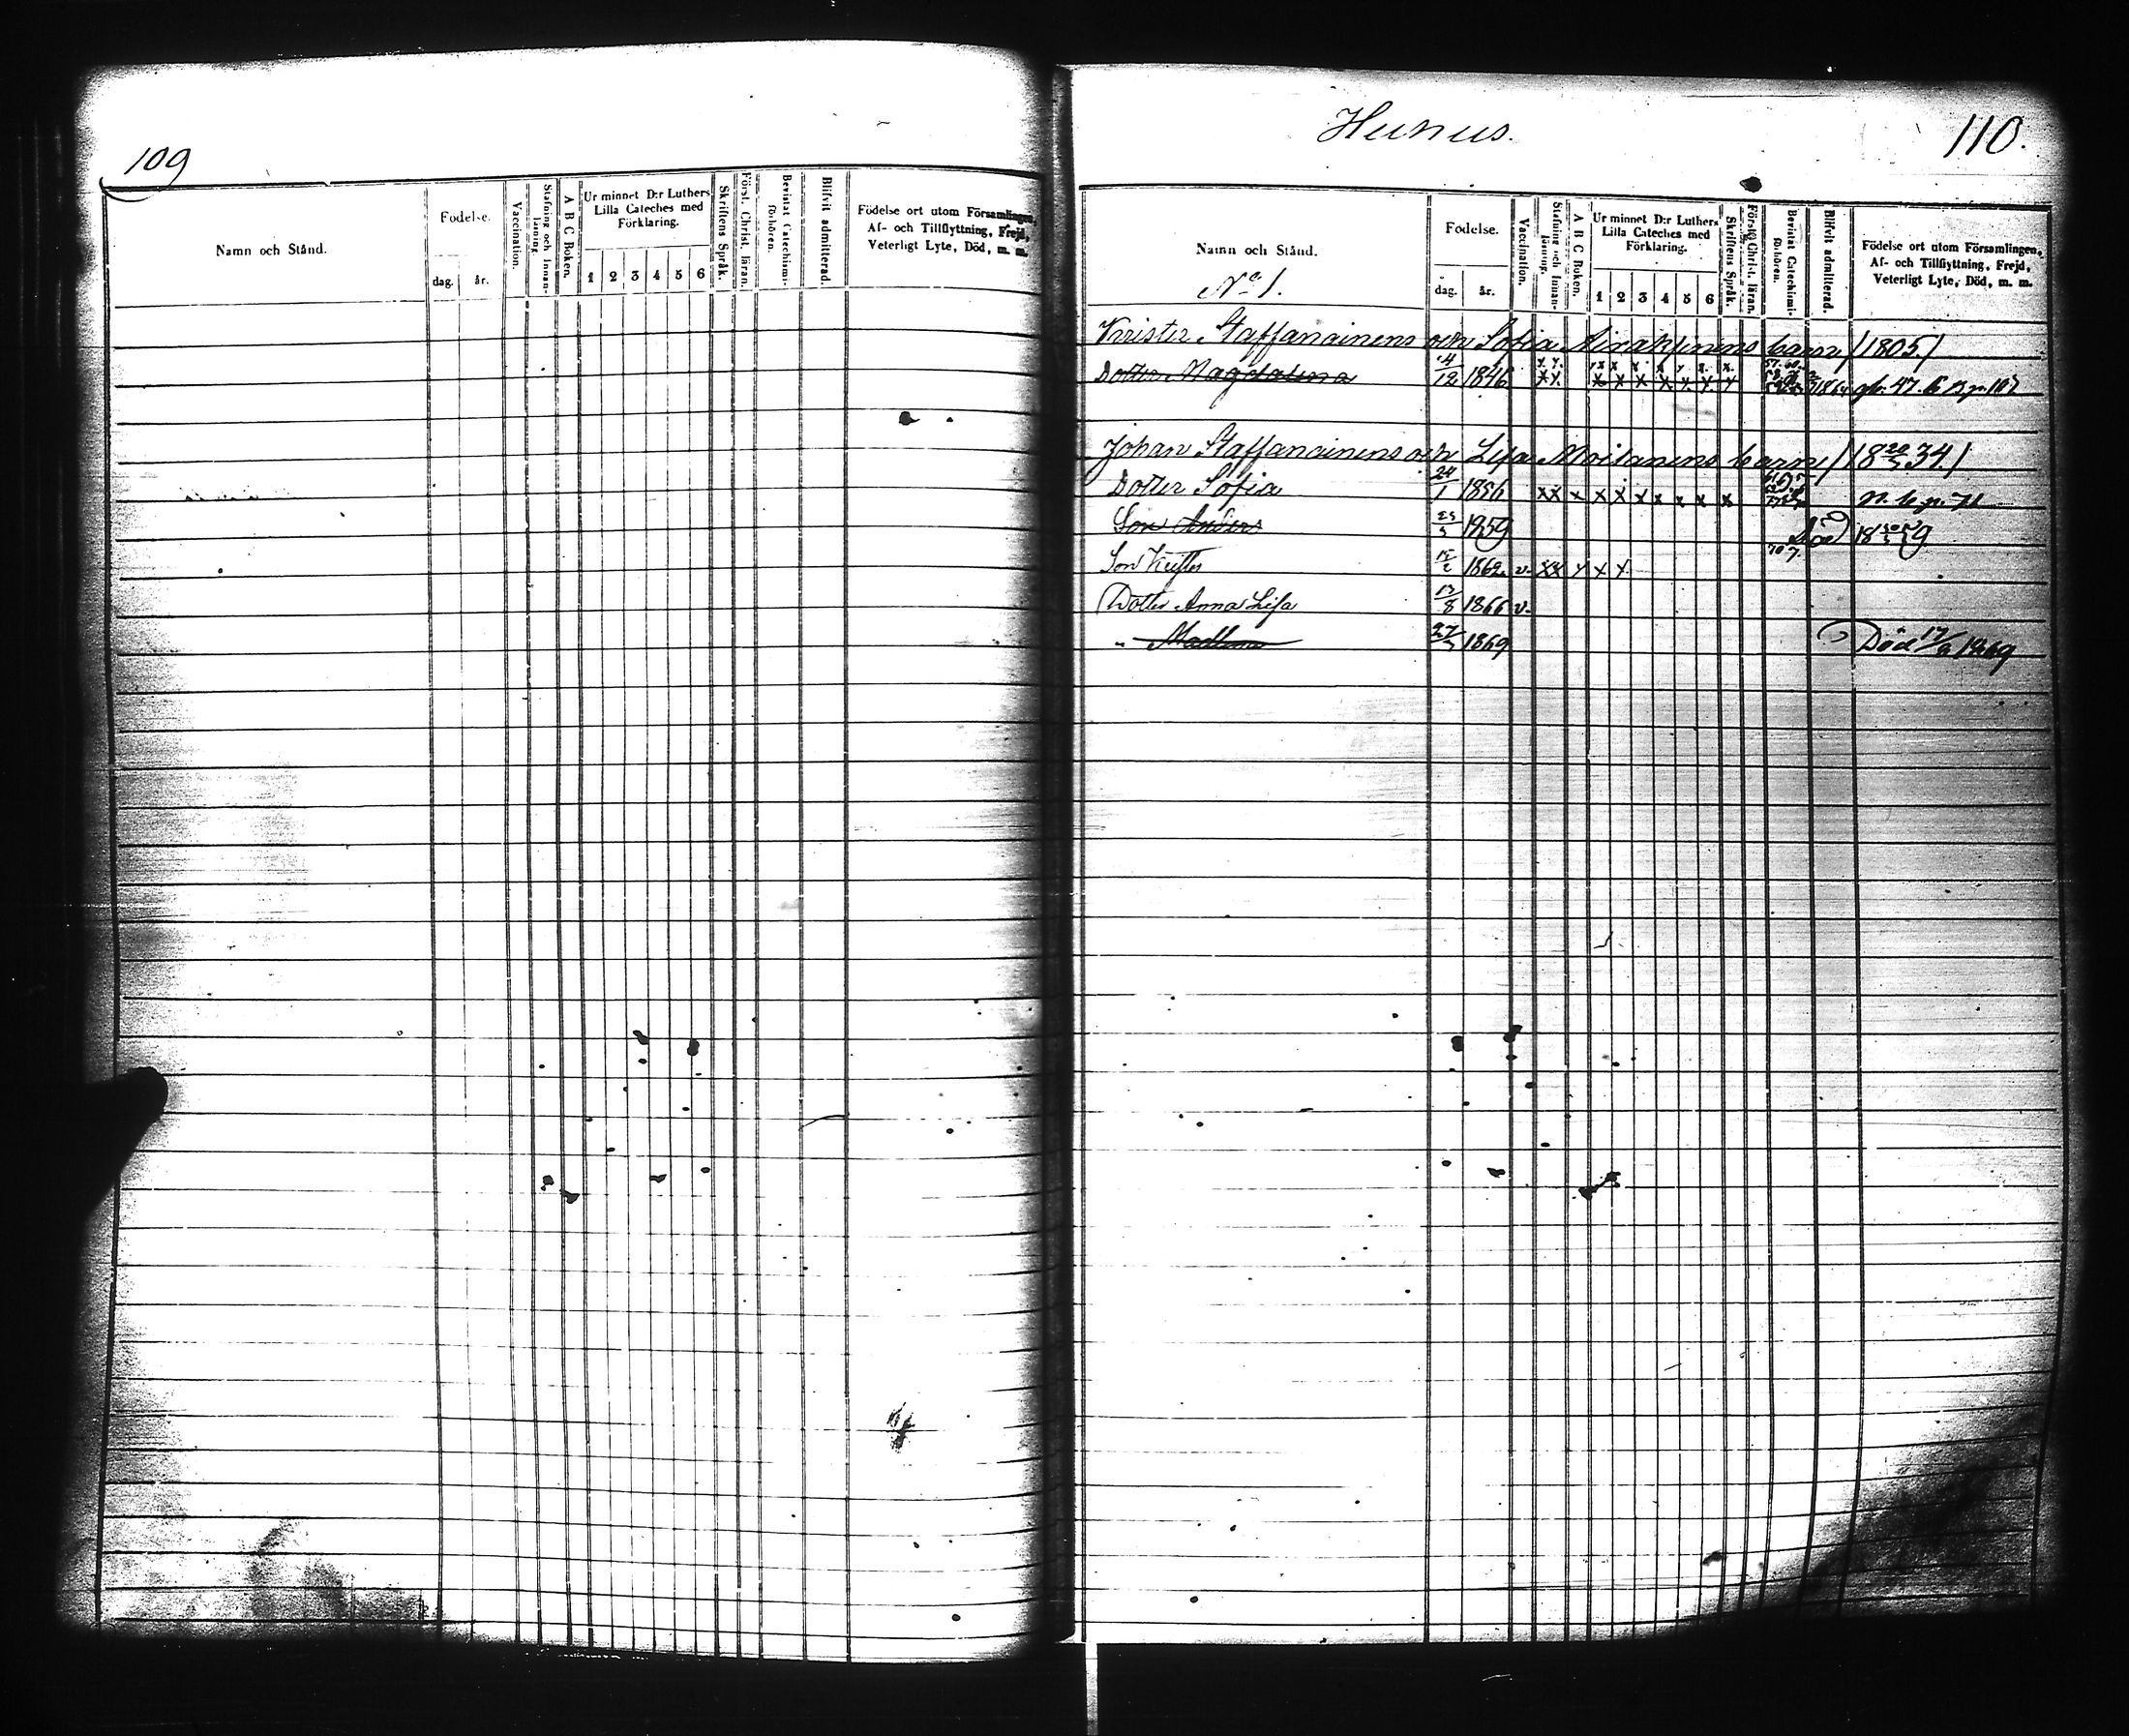 109
Namn och Stånd.
Födelse.
dag. år.
Vaccination.
Stafning och Innanläsning.
A B C Boken.
Ur minnet D:r Luthers Lilla Cateches med Förklaring.
1 2 3 4 5 6
Skriftens Språk.
Först. Christ. läran.
Bevistat Catechismiförhören.
Blifvit admitterad.
Födelse ort utom Församlingen, Af- och Tillflyttning, Frejd, Veterligt Lyte, Död, m. m.
Hunus.
110.
Namn och Stånd.
No 1.
Födelse.
dag. år.
Vaccination.
Stafning och Innanläsning.
A B C Boken.
Ur minnet D:r Luthers Lilla Cateches med Förklaring.
1 2 3 4 5 6
Skriftens Språk.
Först. Christ. läran.
Bevistat Catechismiförhören.
Blifvit admitterad.
Födelse ort utom Församlingen, Af- och Tillflyttning, Frejd, Veterligt Lyte, Död, m. m.
Krister Staffanainens och Sofia barn /1805/
Dotter Magdalena 14/12 1846 x x x x x x x x x 1864 p. 107
Johan Staffanainens och Lisa Moilanens barn /18 20/3 34./
Dotter Sofia 24/1 1856 x x x x x x x x x x n. b. p. 71
Son Anders 1859 Död
Son Krister 1862. v. x x x x x
Dotter Anna Lisa 13/8 1866 v.
" Madlena 27/3 1869 Död 17/9 1869